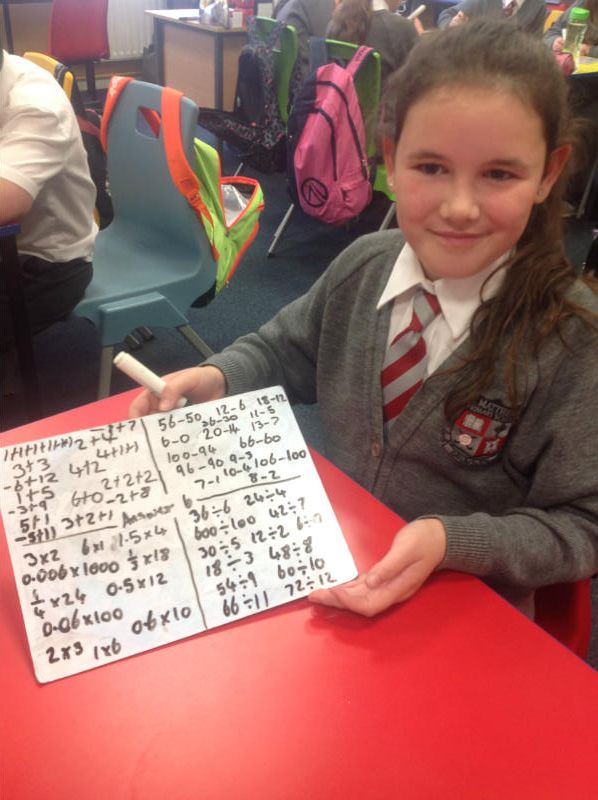 1+1+1+1+1+1 2+4
3+3 4+1+1
-6+12 4+2
1+5 2+2+2
-3+9 6+0 -2+8
5+1 3+2+1
-5+11 Answer
56-50 12-6 18-12
36-30 11-5
6-0 20-14 13-7
100-94 66-60
96-90 9-3
7-1 10-4 106-100
8-2
3×2 6×1 1.5×4
0.006×1000 1/3×18
1/4×24 0.5×12
0.06×100 0.6×10
2×3 1×6
6
36÷6 24÷4
600÷100 42÷7
30÷5 12÷2
18÷3 48÷8
54÷9 60÷10
66÷11 72÷12